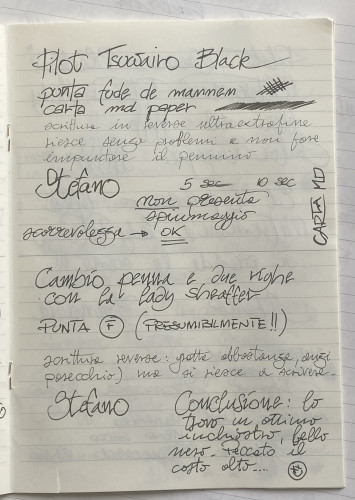 Pilot Tsuwairo Black
punta fude de mannen
carta md paper
scrittura in reverse ultraextrafine
riesce senza problemi e non fore
impuntare il pennino
Stefano
5 sec 10 sec
non presenta
spiumaggio
scorrevolezza → OK
CARTA MD
Cambio penna e due righe
con la lady sheaffer
PUNTA (F) (PRESUMIBILMENTE!!)
scrittura reverse: gratta abbastanza, anzi
parecchio) ma si riesce a scrivere
Stefano
Conclusione: lo
trovo un ottimo
inchiostro, bello
nero. Peccato il
costo alto....